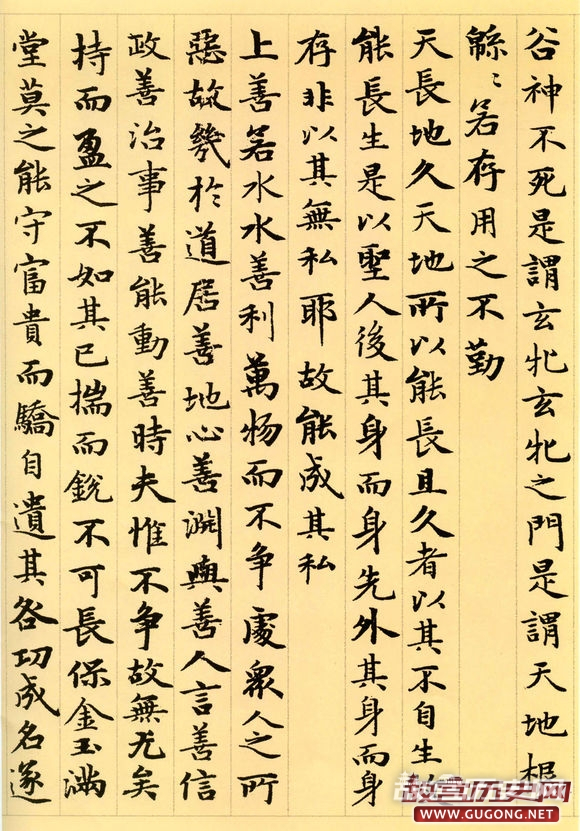 谷神不死是謂玄牝玄牝之門是謂天地根
緜〻若存用之不勤
天長地久天地所以能長且久者以其不自生以
能長生是以聖人後其身而身先外其身而身
存非以其無私耶故能成其私
上善若水水善利萬物而不争處衆人之所
惡故幾於道居善地心善淵與善人言善信
政善治事善能動善時夫惟不争故無尤矣
持而盈之不如其已揣而銳不可長保金玉滿
堂莫之能守富貴而驕自遺其咎功成名遂
故宫历史网
WWW.GUGONG.NET